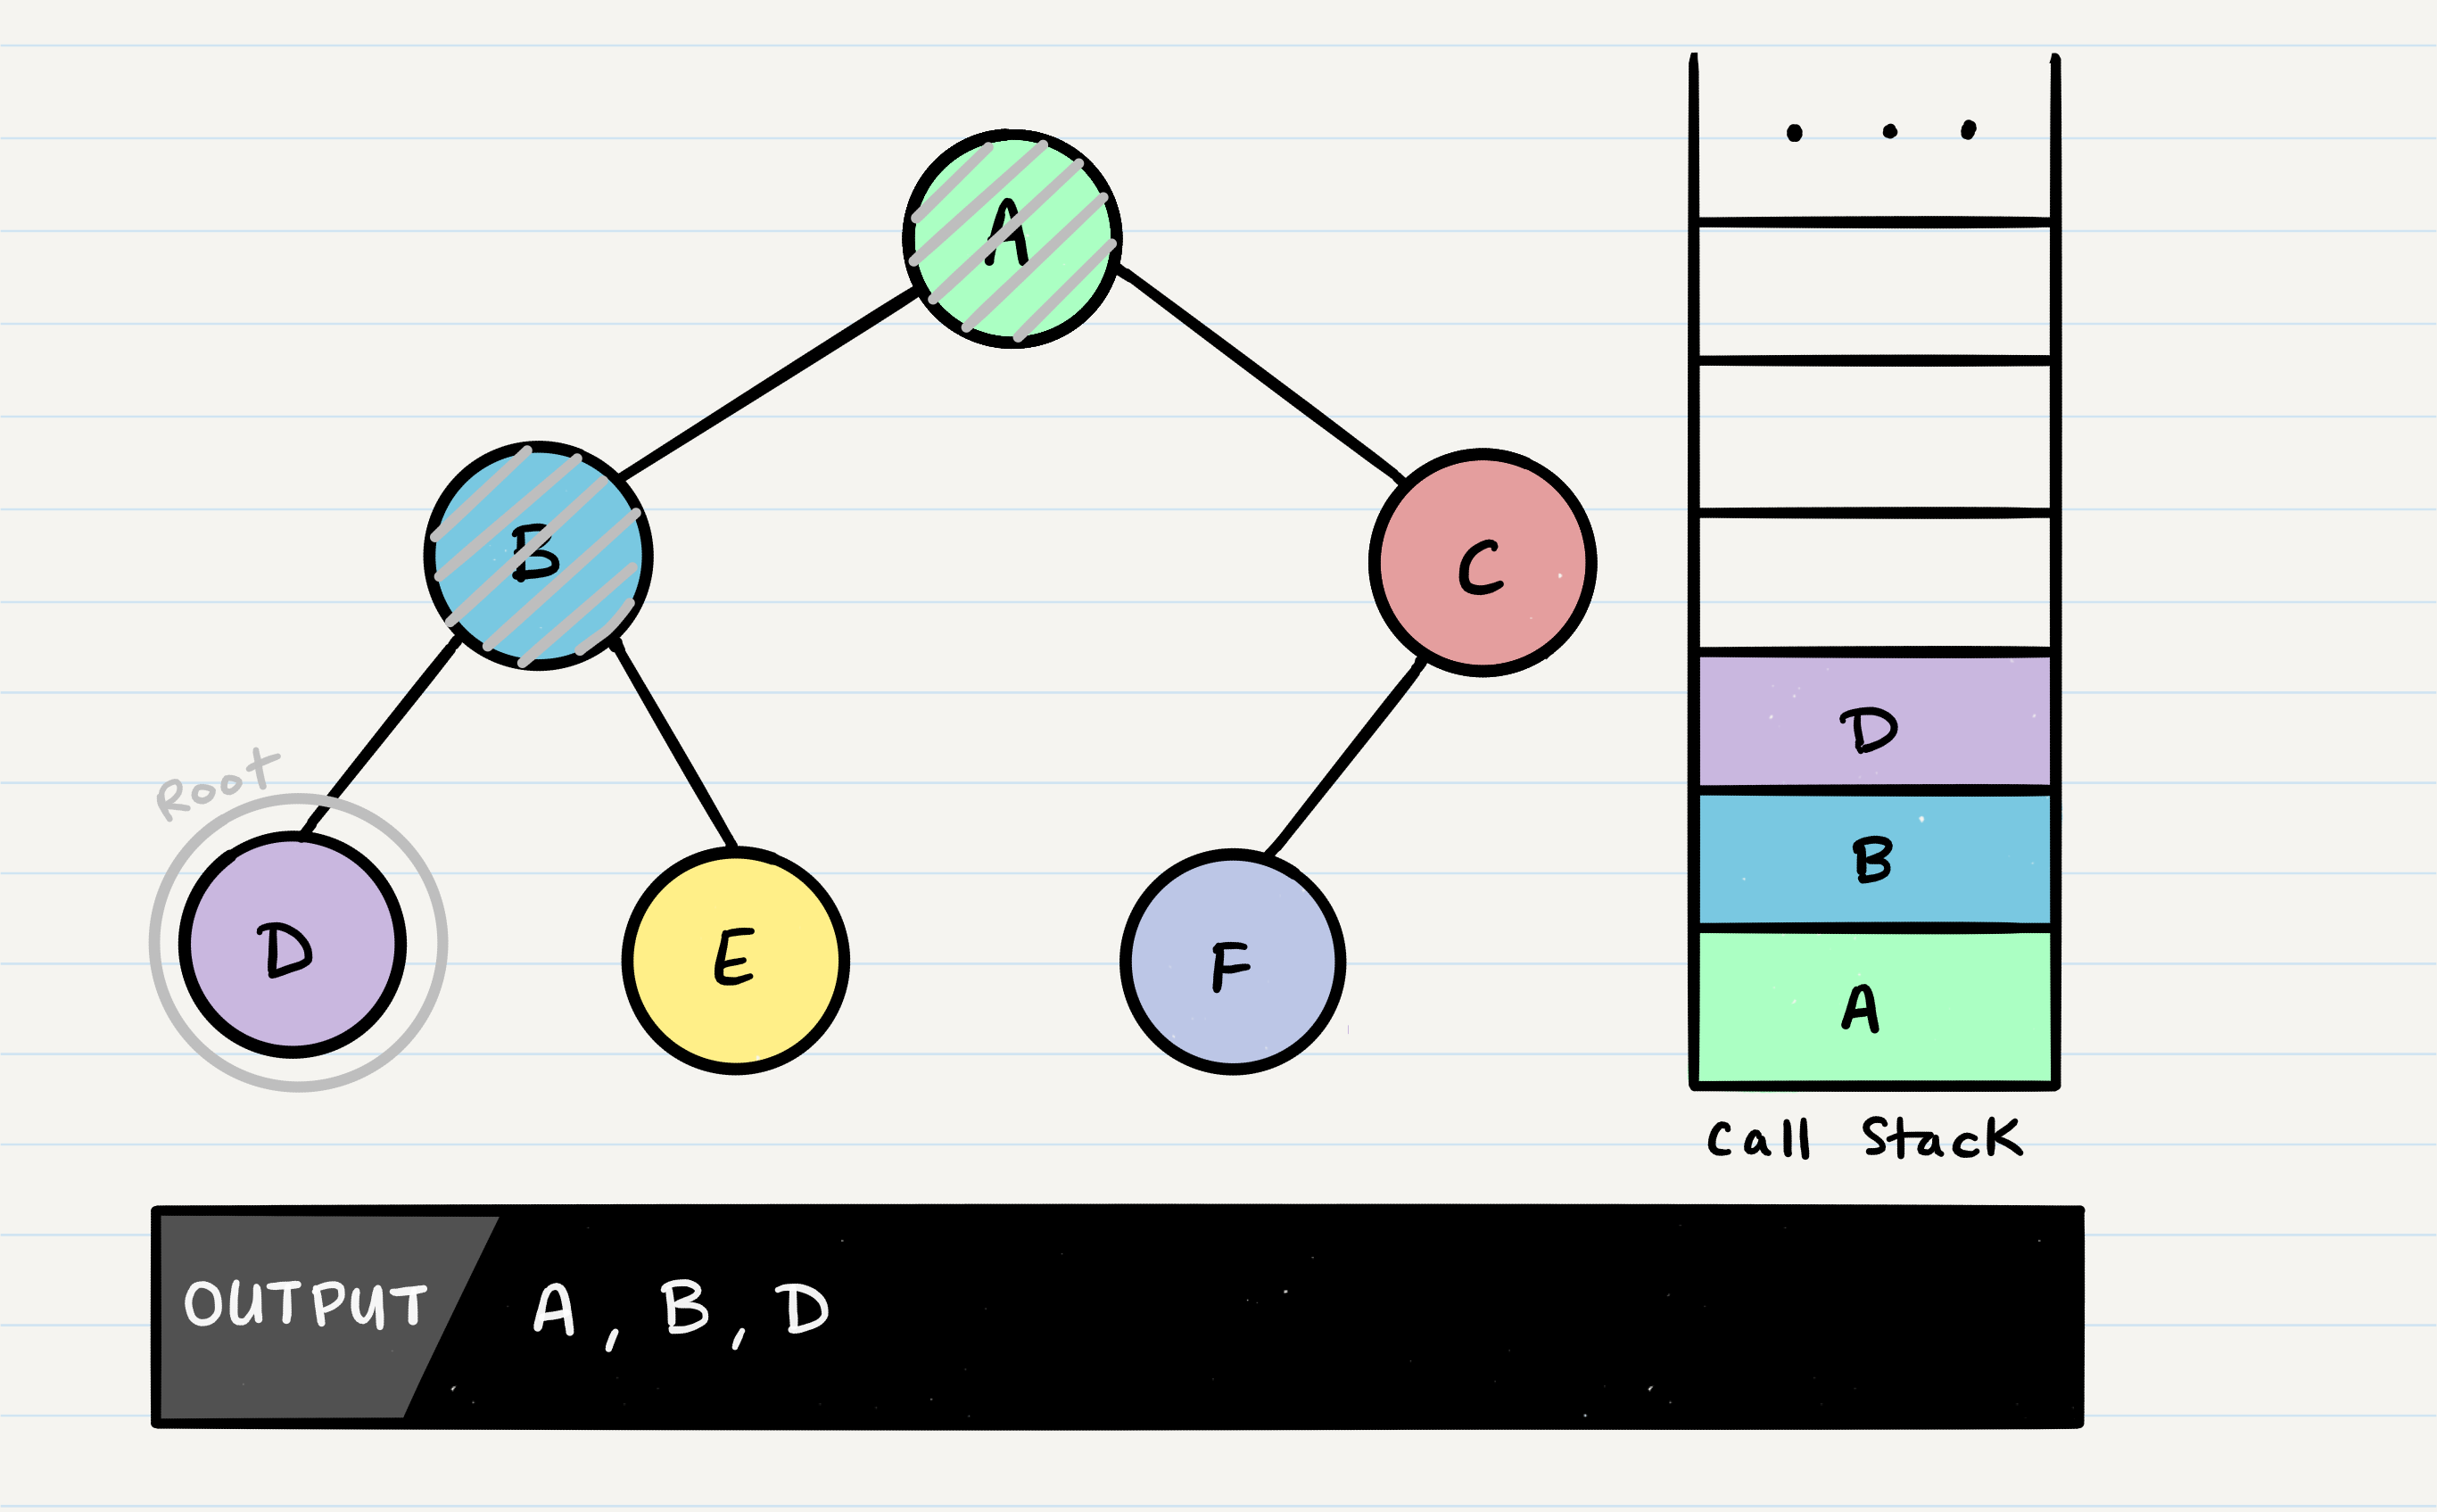 A
B
C
Root
D
E
F
. . .
D
B
A
Call Stack
OUTPUT A, B, D